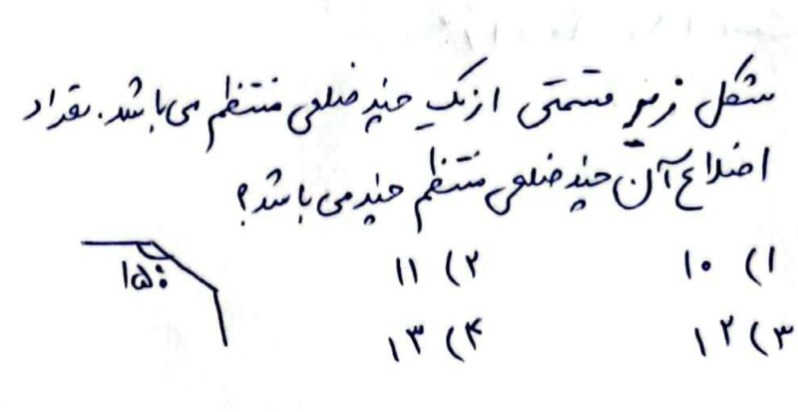 شکل زیر قسمتی از یک چند ضلعی منتظم می باشد. تعداد
اضلاع آن چند ضلعی منتظم چند می باشد؟
۱) ۱۰ ۲) ۱۱
۱۵۰°
۳) ۱۲ ۴) ۱۳